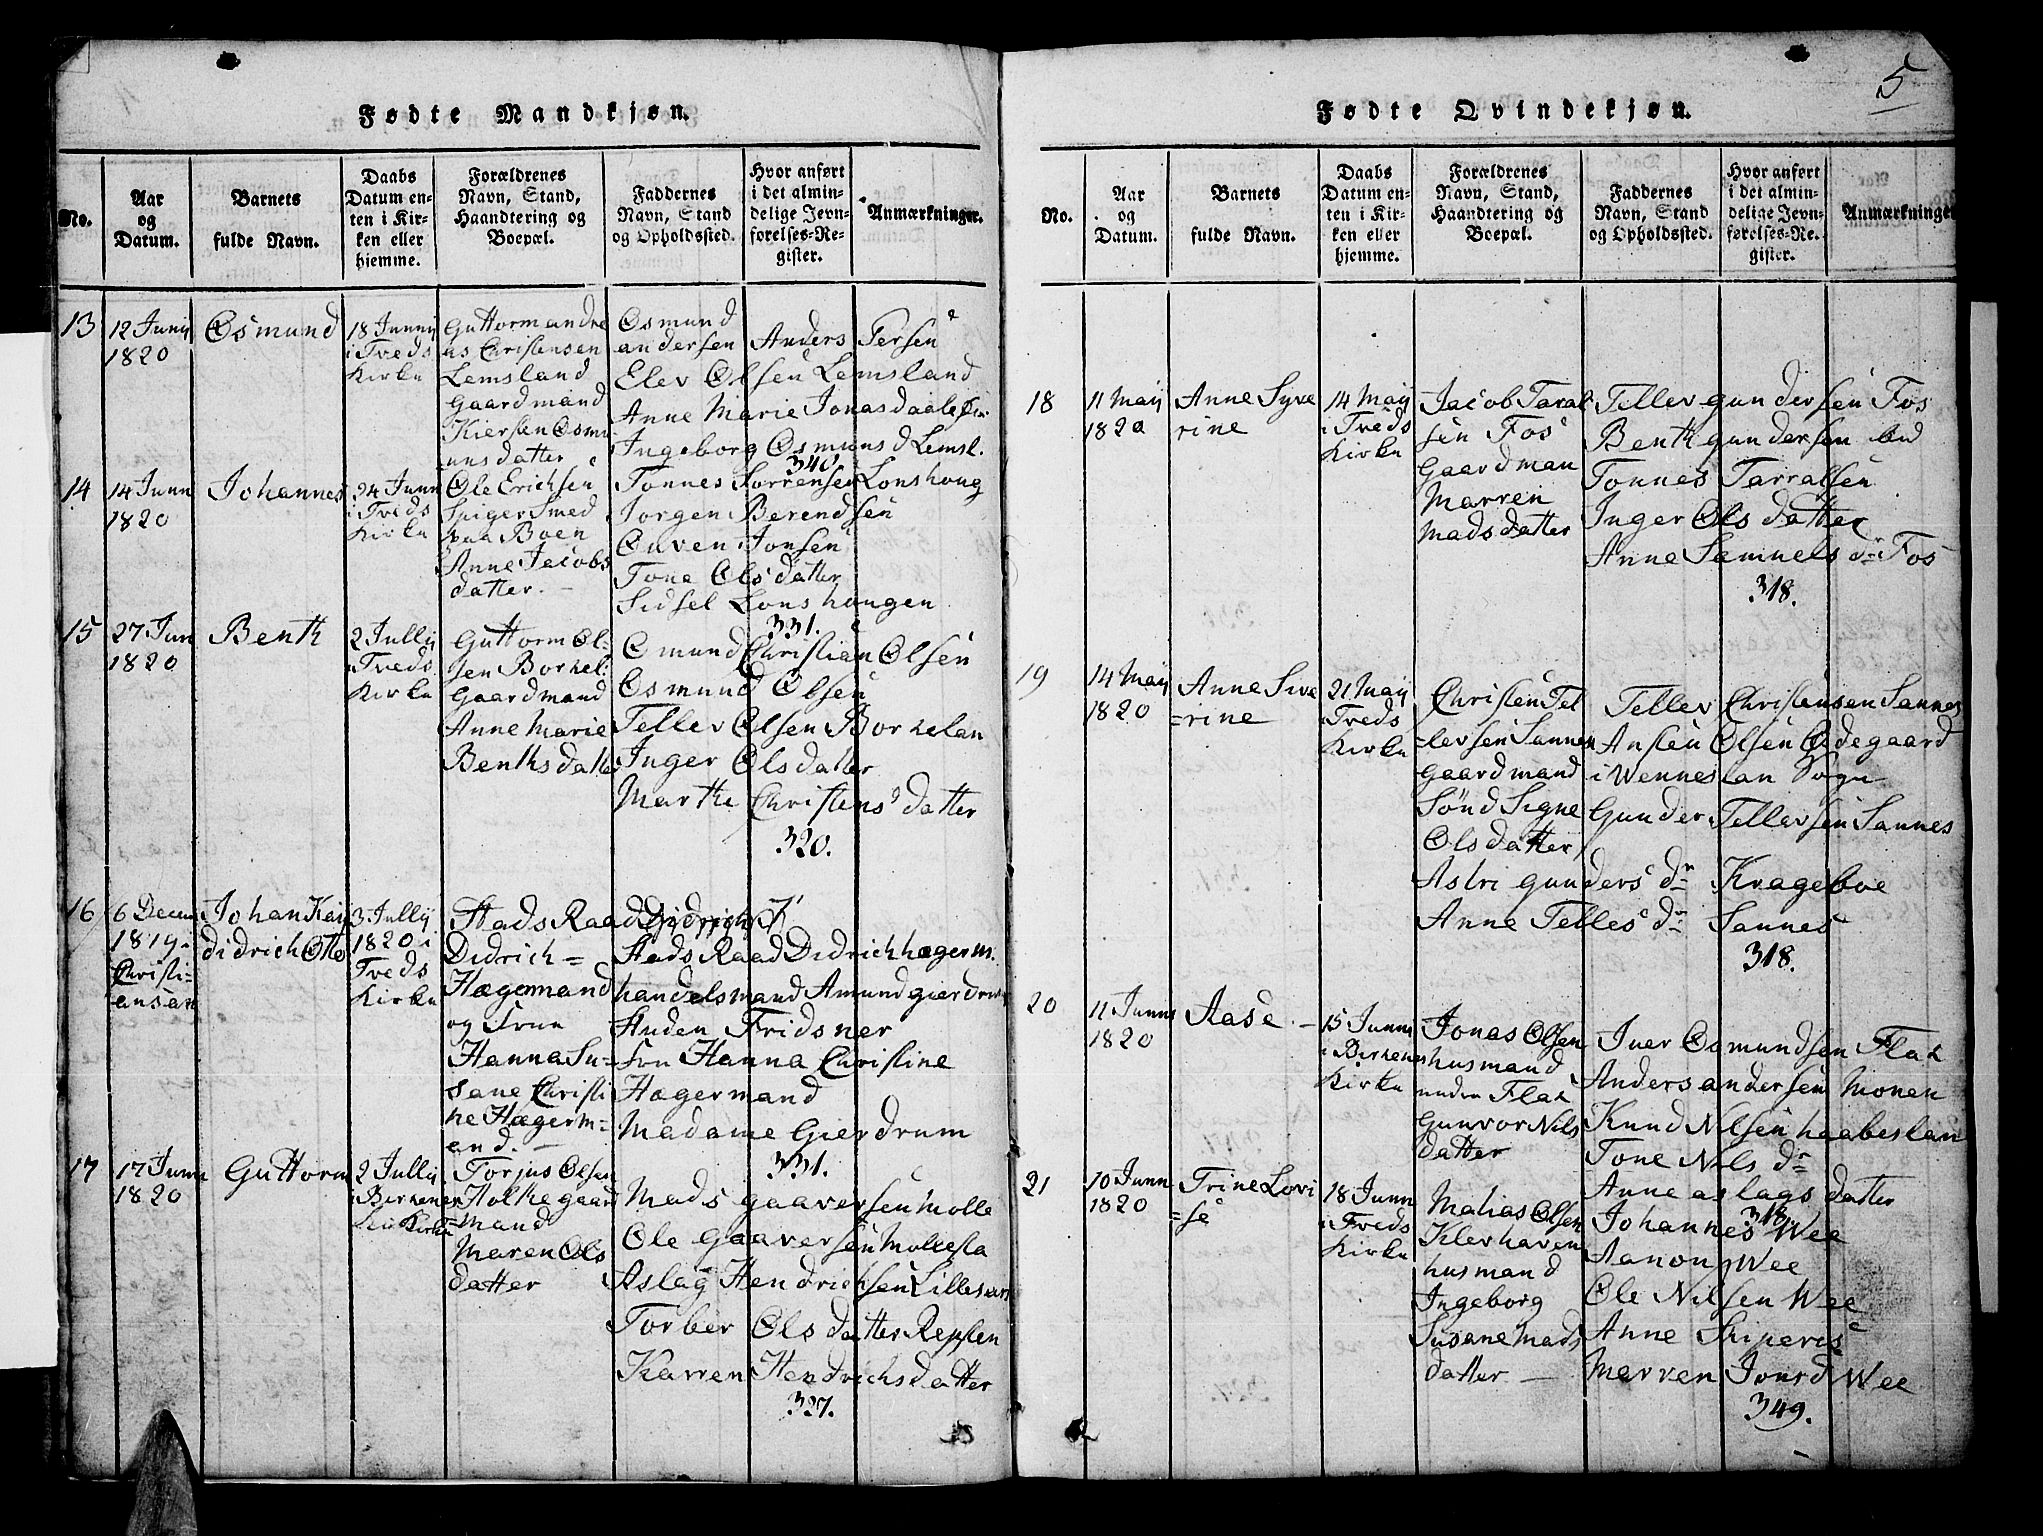 5
Fødte Mandkjøn.
No.
Aar
og
Datum.
Barnets
fulde Navn.
Daabs
Datum en-
ten i Kir-
ken eller
hjemme.
Forældrenes
Navn, Stand,
Haandtering og
Boepæl.
Faddernes
Navn, Stand
og Opholdssted.
Hvor anført
i det almin-
delige Jevn-
førelses-Re-
gister.
Anmærkninger.
13
12 Junij
1820
Osmund
18 Junij
i Tveds
Kirke
Guttorm Andre
as Christensen
Lemsland
Gaardmand
Kiersten Osmu
unsdatter
Osmund
andersen Anders Persen
Elev Olsen Lemsland
Anne Marie Jonasdaale
Ingeborg Osmuns d Lemsl.
340.
14
14 Junn
1820
Johannes
24 Junn
i Tveds
Kirke
Ole Erichsen
Spiger Smed
paa Boen
Anne Jacobs
datter. –
Tonnes Sorrensen Lonshoug
Jorgen Berendsen
Ouven Jonsen
Tone Olsdatter
Sidsel Lonshaugen
331.
15
27 Jun
1820
Benth
2 Jullij
i Tveds
Kirke
Guttorm Ol-
sen Borkel:
Gaardmand
Anne Marie
Benthsdatter
Omund Christian Olsen
Osmund Olsen
Tellev Olsen Borkelan
Inger Olsdatter
Marthe Christens datter
320.
16
6 Decem
1819.
Christi-
ansan
Johan Kai
didrich Otto
3 Jullij
1820 i
Tveds
Kirke
Stads Raad
Didrich=
Hægermand
og Frue
Hanna Su=
sane Christi
ne Hægerm=
and. –
Stads Raad Didrich hægerm.
handelsmand Amund gierdrum
Studen Fridsner
Fru Hanna Christine
Hægermand
Madame Gierdrum
331.
17
17 Junn
1820
Guttorm
2 Jullij
i Birkenes
Kirke
Torjus Olsen
Holke gaard
mand
Maren Ols
datter
Mads gaaversen Molle
Ole gaaversen Mollesta
Aslag Hendrichsen Lillesær
Torber Olsdatter Repsten
Karren Hendrichsdatter
327.
Fødte Qvindekjøn.
No.
Aar
og
Datum.
Barnets
fulde Navn.
Daabs
Datum en-
ten i Kir-
ken eller
hjemme.
Forældrenes
Navn, Stand,
Haandtering og
Boepæl.
Faddernes
Navn, Stand
og Opholdssted.
Hvor anført
i det almin-
delige Jevn-
førelses-Re-
gister.
Anmærkninger
18
11 Maij
1820
Anne Syve
rine
14 Maij
i Tveds
Kirke
Jacob Taral
sen Fos
Gaardman
Marren
Madsdatter
Tellev gundersen Fos
Benth gundersen
Tonnes Tarralsen
Inger Olsdatter
Anne Samuels dr Fos
318.
19
14 Maij
1820
Anne Sive
=rine
21 Maij
i Tveds
Kirke
Christen Tel
levsen Sannes
Gaardmand
Sønd Signe
Olsdatter
Tellev Christensen Sannes
Ansten Olsen Ødegaard
i Wenneslan Sogn
Gunder Tellevsen Sannes
Astri gunders dr Krageboe
Anne Telles dr Sannes
318.
20
11 Junn
1820
Aase. –
15 Junn
i Birkenes
Kirke
Jonas Olsen
husmand
under Flak
Gunvor Nils
datter
Iver Osmundsen Flak
Anders andersen Monen
Knud Nilsen haabeslan
Tone Nils dr
Anne aslags datter
318.
21
10 Junn
1820
Trine Lovi
=se
18 Junn
i Tveds
Kirke
Matias Olsen
Klevhaven
husmand
Ingeborg
Susane Mads
datter –
Johannes Wee
Aanon Wee
Ole Nilsen Wee
Anne Skipers
Marren Jons d Wee
349.